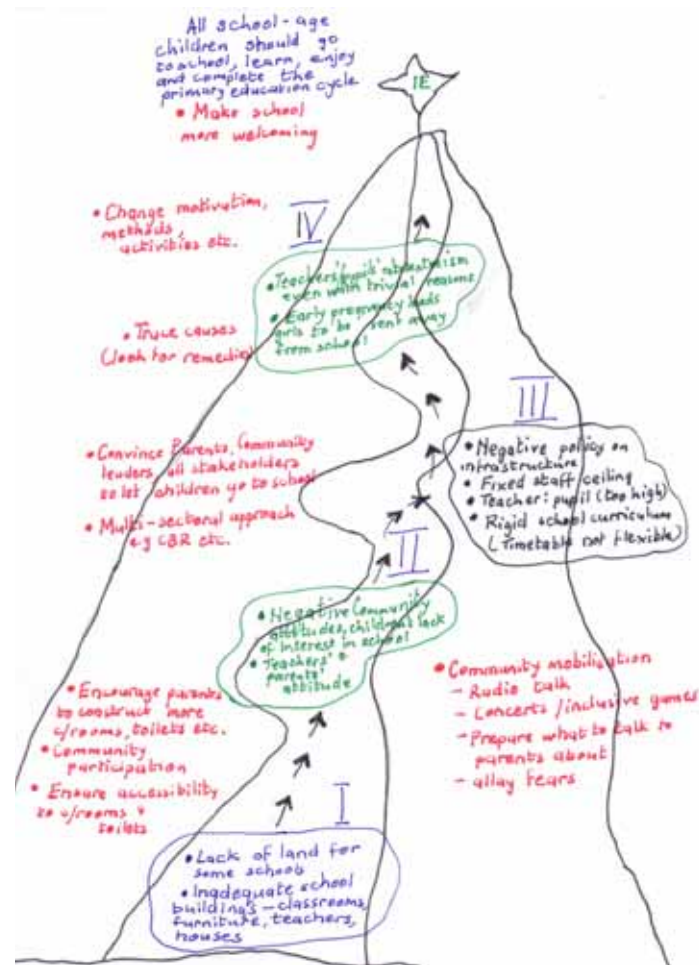 All school-age
children should go
to school, learn, enjoy
and complete the
primary education cycle
• Make school
more welcoming
IE
• Change motivation,
methods,
activities etc.
IV
• Teachers'/pupils' absenteeism
even with trivial reasons
• Early pregnancy leads
girls to be sent away
from school
• Trace causes
(look for remedies)
III
• Negative policy on
infrastructure
• Fixed staff ceiling
• Teacher: pupil (too high)
• Rigid school curriculum
(Timetable not flexible)
• Convince Parents, Community
leaders, all stakeholders
to let children go to school
• Multi-sectoral approach
e.g CBR etc.
II
• Negative Community
attitudes, children's lack
of interest in school
• Teachers' &
parents'
attitude
• Encourage parents
to construct more
c/rooms, toilets etc.
• Community
participation
• Ensure accessibility
to c/rooms &
toilets
• Community mobilisation
- Radio talk
- Concerts/inclusive games
- Prepare what to talk to
parents about
- allay fears
I
• Lack of land for
some schools
• Inadequate school
buildings - classrooms,
furniture, teachers,
houses